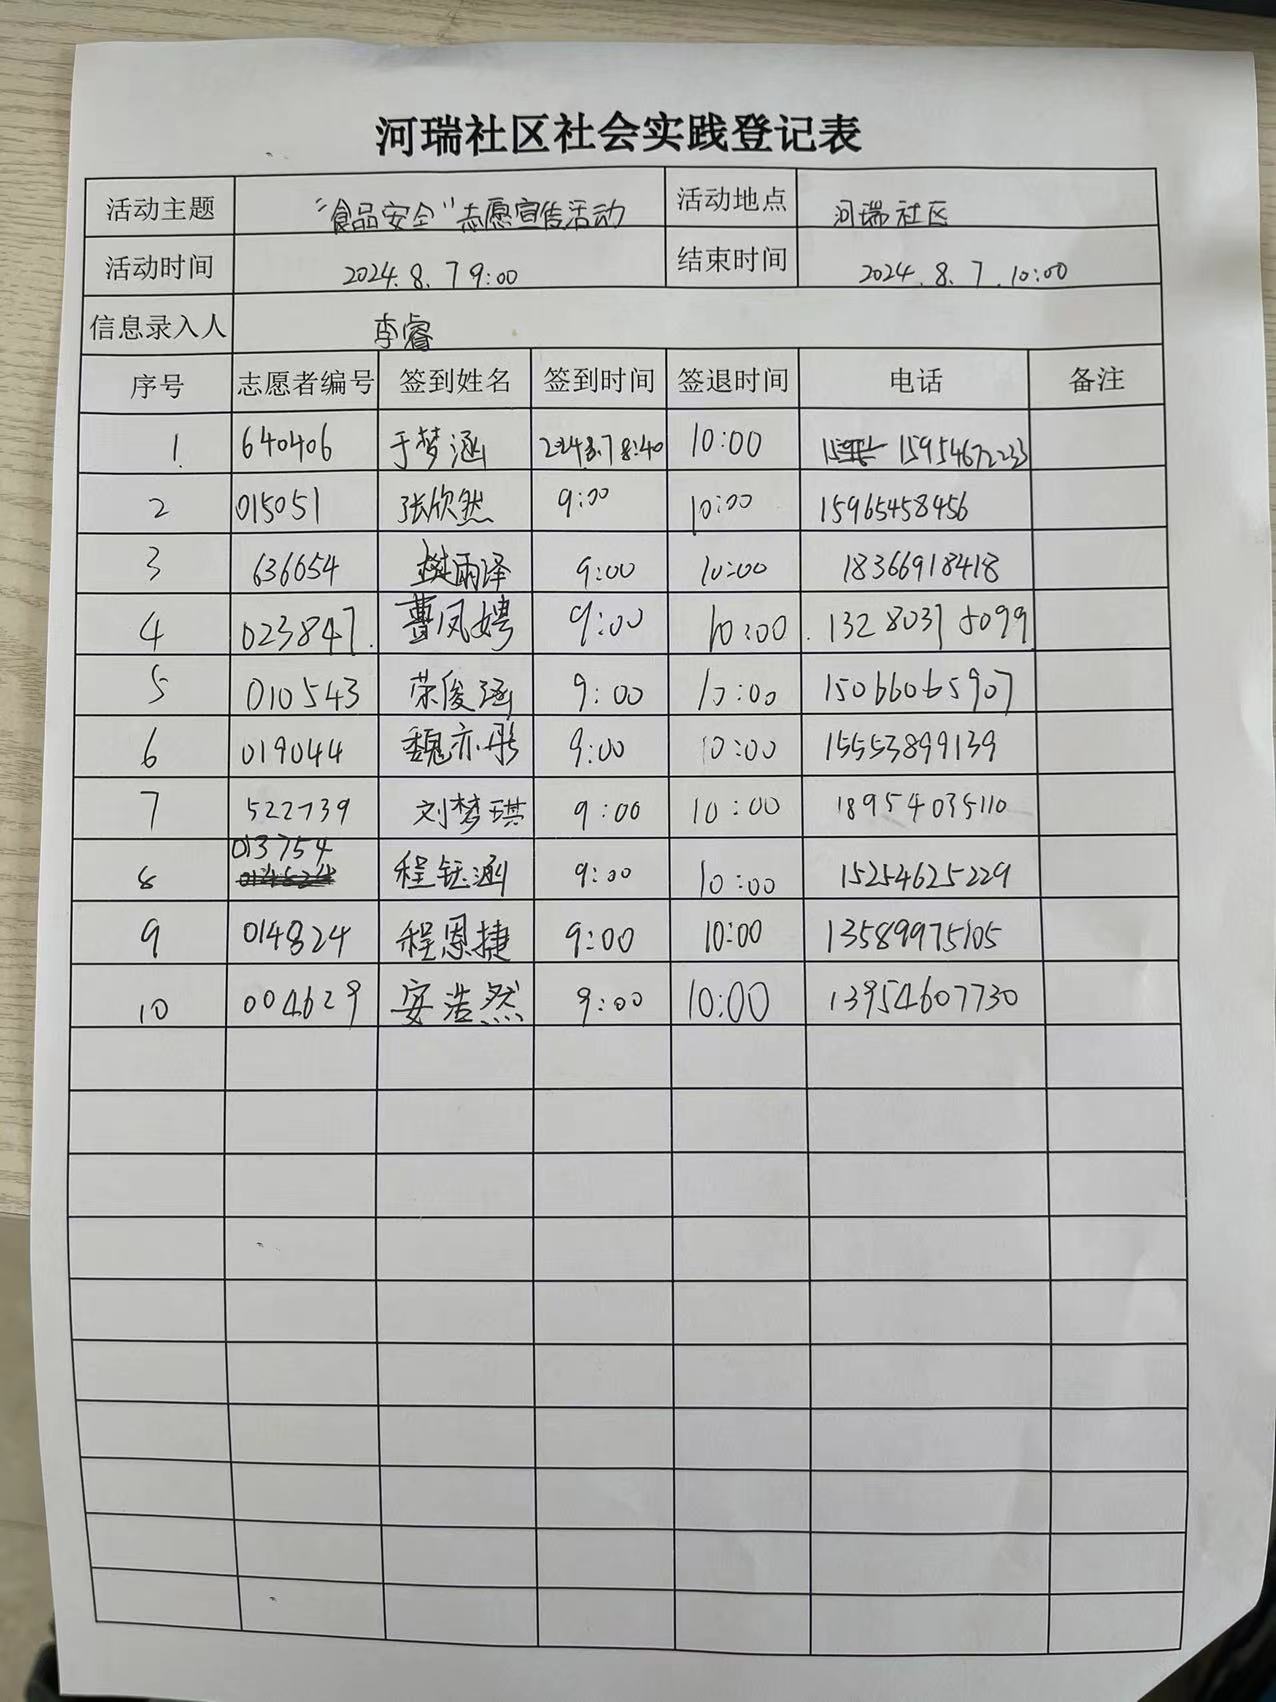 河瑞社区社会实践登记表
活动主题 “食品安全”志愿宣传活动 活动地点 河瑞社区
活动时间 2024.8.7 9:00 结束时间 2024.8.7.10:00
信息录入人 李睿
序号 志愿者编号 签到姓名 签到时间 签退时间 电话 备注
1 640406 于梦涵 2024.8.7 8:40 10:00 15954672233
2 015051 张欣然 9:00 10:00 15965458456
3 636654 樊雨泽 9:00 10:00 18366918418
4 023847. 曹凤娉 9:00 10:00 13280375099
5 010543 荣俊涵 9:00 10:00 15066065907
6 019044 魏亦彤 9:00 10:00 15553899139
7 522739 刘梦琪 9:00 10:00 18954035110
8 013754 程钰涵 9:00 10:00 15254625229
9 014824 程恩捷 9:00 10:00 13589975105
10 004629 安浩然 9:00 10:00 13954607730